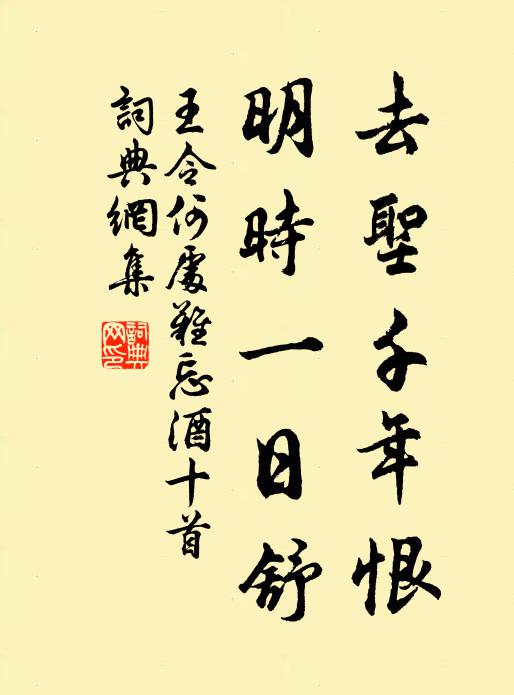 去聖千年恨
明時一日舒
王令何處難忘酒十首
詞典網集
詞典網印